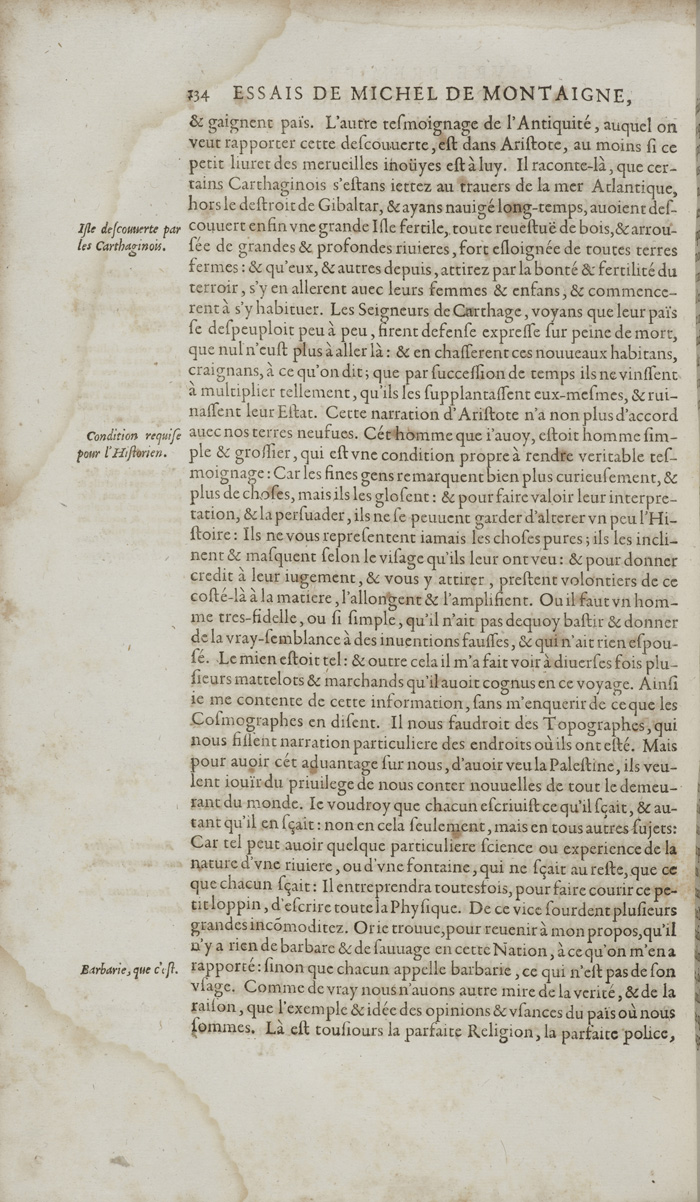 134 ESSAIS DE MICHEL DE MONTAIGNE,
& gaignent païs. L'autre teſmoignage de l'Antiquité, auquel on
veut rapporter cette deſcouuerte, eſt dans Ariſtote, au moins ſi ce
petit liuret des merueilles inoüyes eſt à luy. Il raconte-là, que cer-
tains Carthaginois s'eſtans iettez au trauers de la mer Atlantique,
hors le deſtroit de Gibaltar, & ayans nauigé long-temps, auoient deſ-
Iſle deſcouuerte par
les Carthaginois.
couuert enfin vne grande Iſle fertile, toute reueſtuë de bois, & arrou-
ſée de grandes & profondes riuieres, fort eſloignée de toutes terres
fermes: & qu'eux, & autres depuis, attirez par la bonté & fertilité du
terroir, s'y en allerent auec leurs femmes & enfans, & commence-
rent à s'y habituer. Les Seigneurs de Carthage, voyans que leur païs
ſe deſpeuploit peu à peu, firent defenſe expreſſe ſur peine de mort,
que nul n'euſt plus à aller là: & en chaſſerent ces nouueaux habitans,
craignans, à ce qu'on dit; que par ſucceſſion de temps ils ne vinſſent
à multiplier tellement, qu'ils les ſupplantaſſent eux-meſmes, & rui-
naſſent leur Eſtat. Cette narration d'Ariſtote n'a non plus d'accord
Condition requiſe
pour l'Hiſtorien.
auec nos terres neufues. Cét homme que i'auoy, eſtoit homme ſim-
ple & groſſier, qui eſt vne condition propre à rendre veritable teſ-
moignage: Car les fines gens remarquent bien plus curieuſement, &
plus de choſes, mais ils les gloſent: & pour faire valoir leur interpre-
tation, & la perſuader, ils ne ſe peuuent garder d'alterer vn peu l'Hi-
ſtoire: Ils ne vous repreſentent iamais les choſes pures; ils les incli-
nent & maſquent ſelon le viſage qu'ils leur ont veu: & pour donner
credit à leur iugement, & vous y attirer, preſtent volontiers de ce
coſté-là à la matiere, l'allongent & l'amplifient. Ou il faut vn hom-
me tres-fidelle, ou ſi ſimple, qu'il n'ait pas dequoy baſtir & donner
de la vray-ſemblance à des inuentions fauſſes, & qui n'ait rien eſpou-
ſé. Le mien eſtoit tel: & outre cela il m'a fait voir à diuerſes fois plu-
ſieurs mattelots & marchands qu'il auoit cognus en ce voyage. Ainſi
ie me contente de cette information, ſans m'enquerir de ce que les
Coſmographes en diſent. Il nous faudroit des Topographes, qui
nous fiſſent narration particuliere des endroits où ils ont eſté. Mais
pour auoir cét aduantage ſur nous, d'auoir veu la Paleſtine, ils veu-
lent iouïr du priuilege de nous conter nouuelles de tout le demeu-
rant du monde. Ie voudroy que chacun eſcriuiſt ce qu'il ſçait, & au-
tant qu'il en ſçait: non en cela ſeulement, mais en tous autres ſujets:
Car tel peut auoir quelque particuliere ſcience ou experience de la
nature d'vne riuiere, ou d'vne fontaine, qui ne ſçait au reſte, que ce
que chacun ſçait: Il entreprendra toutesfois, pour faire courir ce pe-
tit loppin, d'eſcrire toute la Phyſique. De ce vice ſourdent pluſieurs
grandes incōmoditez. Or ie trouue, pour reuenir à mon propos, qu'il
n'y a rien de barbare & de ſauuage en cette Nation, à ce qu'on m'en a
Barbarie, que c'eſt.
rapporté: ſinon que chacun appelle barbarie, ce qui n'eſt pas de ſon
vſage. Comme de vray nous n'auons autre mire de la verité, & de la
raiſon, que l'exemple & idée des opinions & vſances du païs où nous
ſommes. Là eſt touſiours la parfaite Religion, la parfaite police,